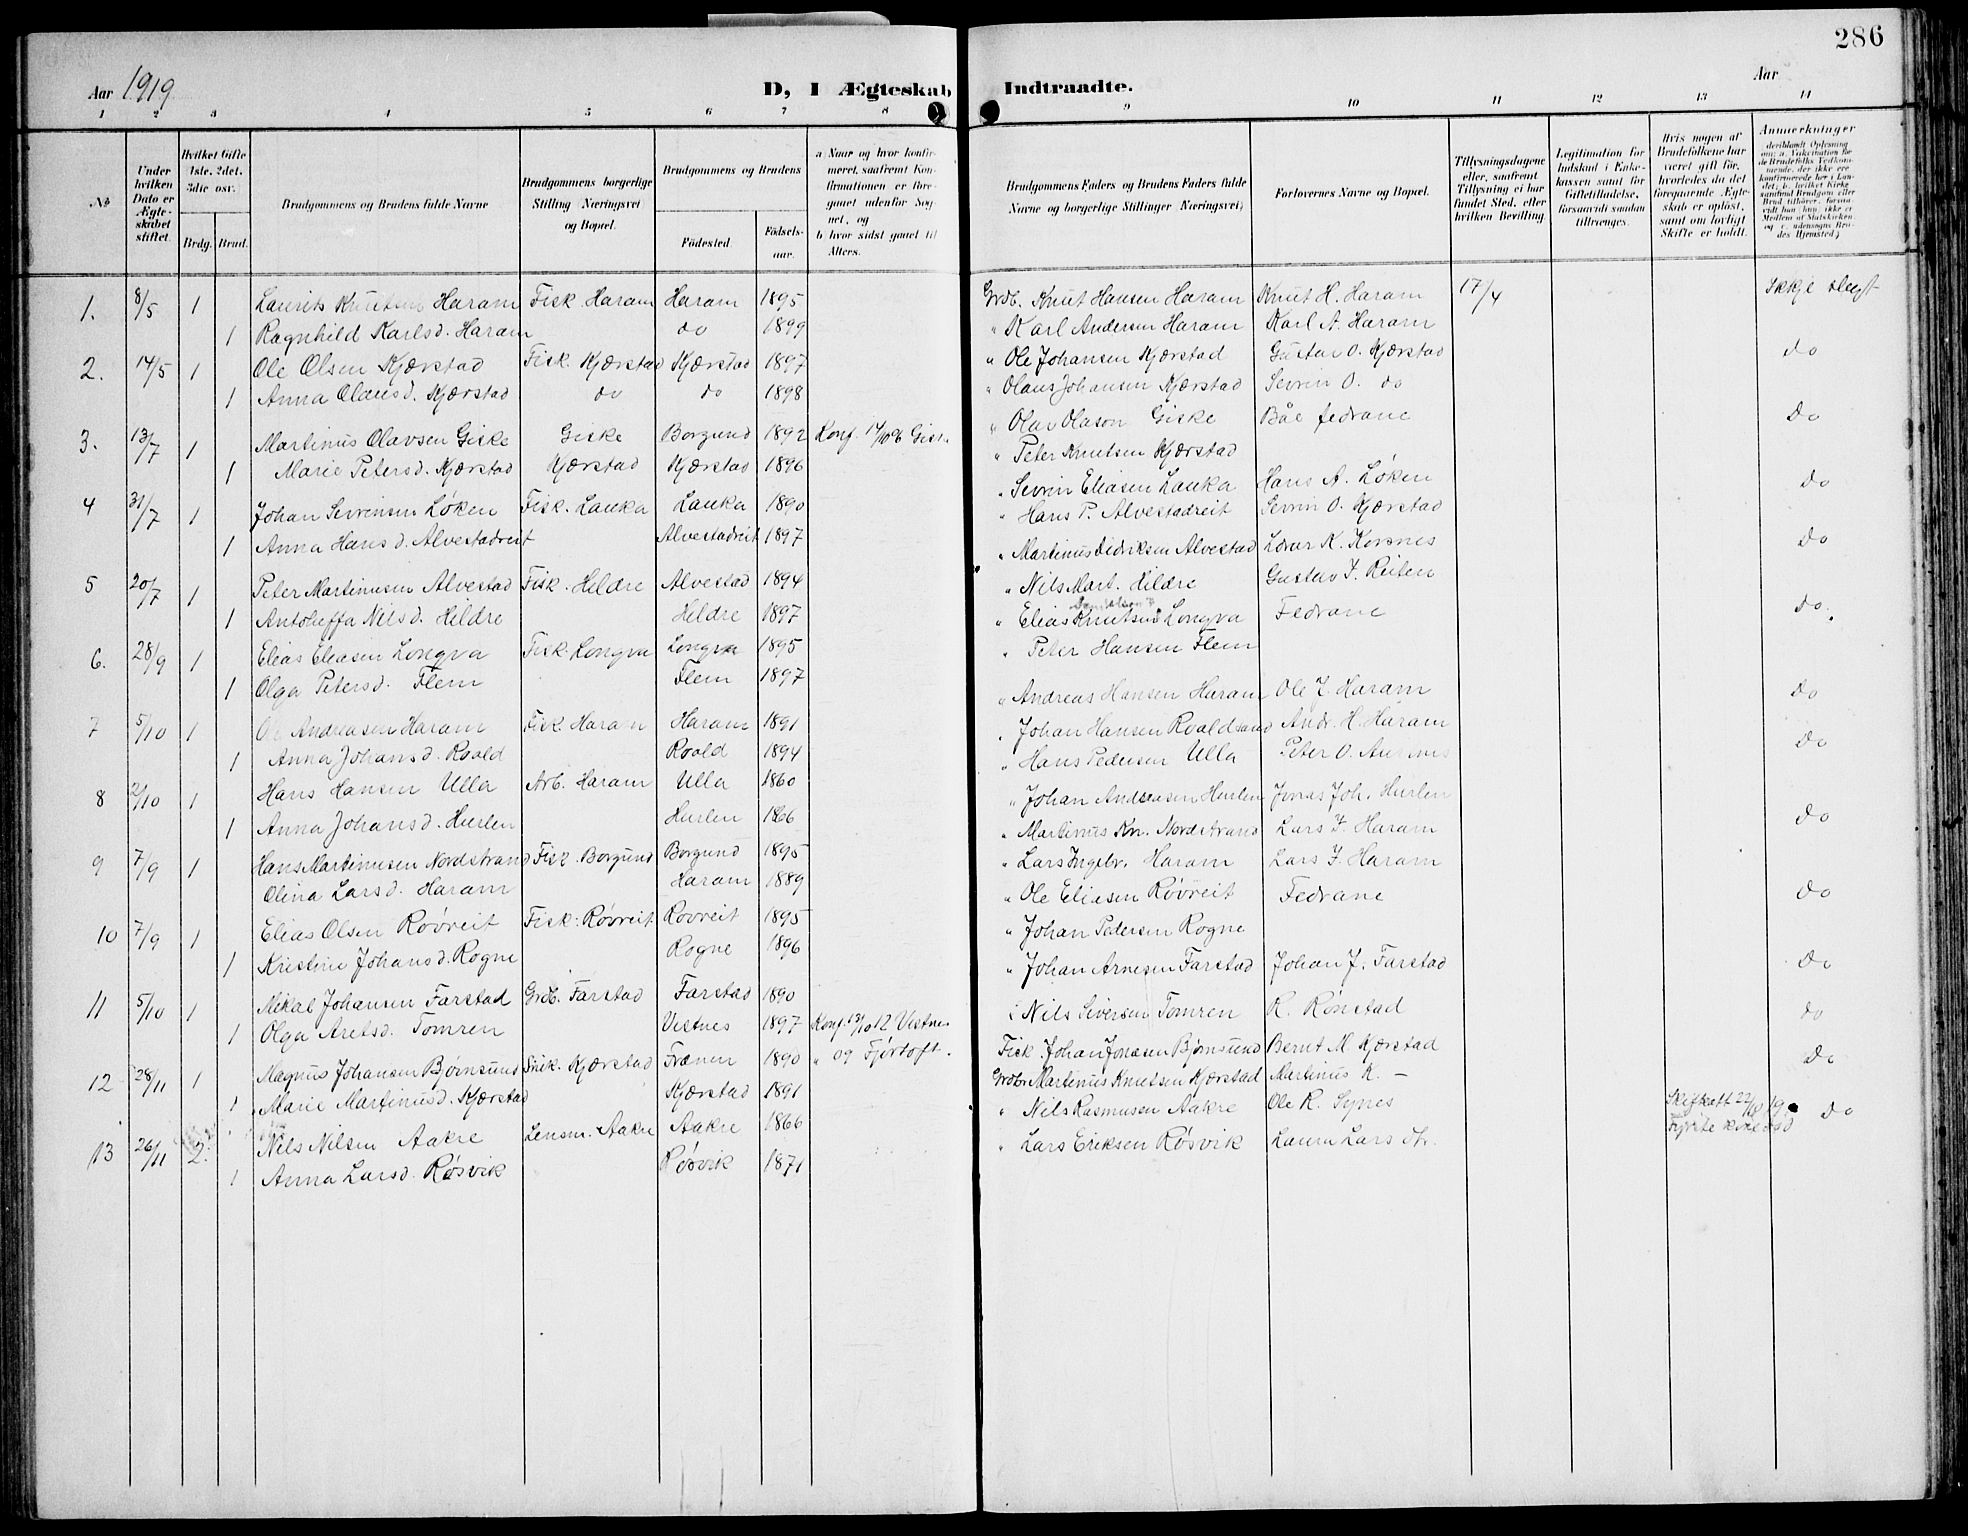 286
Aar 1919. D, I Ægteskab Indtraadte. Aar
1 2 3 4 5 6 7 8 9 10 11 12 13 14
No
Under hvilken Dato er Ægteskabet stiftet.
Hvilket Gifte 1ste, 2det, 3die osv.
Brdg. Brud.
Brudgommens og Brudens fulde Navne
Brudgommens borgerlige Stilling Næringsvei og Bopæl.
Brudgommens og Brudens
Fødested. Fødselsaar.
a Naar og hvor konfirmeret, saafremt Konfirmationen er foregaaet udenfor Sognet, og
b hvor sidst gaaet til Alters.
Brudgommens Faders og Brudens Faders fulde Navne og borgerlige Stillinger Næringsvei)
Forlovernes Navne og Bopæl.
Tillysningsdagene eller, saafremt Tillysning ei har fundet Sted, efter hvilken Bevilling.
Legitimation for Indskud i Enkekassen samt for Giftetilladelse, forsaavidt saadan tiltrænges.
Hvis nogen af Brudefolkene har været gift før, hvorledes da det foregaaende Ægteskab er opløst, samt om lovligt Skifte er holdt.
Anmerkninger
1. 8/5 1 Laurits Knutsen Haram Fisk. Haram Haram 1895 Grdb. Knut Hansen Haram Knut H. Haram 17/4 Ikkje slegt
1 Ragnhild Karlsd. Haram do 1899 " Karl Andersen Haram Karl A. Haram
2. 14/5 1 Ole Olsen Kjærstad Fisk. Kjærstad Kjærstad 1897 " Ole Johansen Kjærstad Gustav O. Kjærstad do
1 Anna Olausd. Kjærstad do do 1898 " Olaus Johansen Kjærstad Sevrin O. do
3. 13/7 1 Martinus Olavsen Giske Giske Borgund 1892 Konf. " Olav Olason Giske Båe fedrane do
1 Marie Petersd. Kjærstad Kjærstad Kjærstad 1896 " Peter Knutsen Kjærstad
4 31/7 1 Johan Sevrinsen Løken Fisk. Lauka Lauka 1890 " Sevrin Eliasen Lauka Hans A. Løken do
1 Anna Hansd. Alvestadreit Alvestadreit 1897 " Hans P. Alvestadreit Sevrin O. Kjærstad
5 20/7 1 Peter Martinusen Alvestad Fisk. Hildre Alvestad 1894 " Martinus Didriksen Alvestad K. Korsnes do
1 Antoneffa Nilsd. Hildre Hildre 1897 " Nils Mart. Hildre Gustav J. Reiten
6. 28/9 1 Elias Eliasen Longva Fisk. Longva Longva 1895 " Elias Knutsen Longva Fedrane do.
1 Olga Petersd. Flem Flem 1897 " Peter Hansen Flem
7 5/10 1 Andreasen Haram Fisk. Haram Haram 1891 " Andreas Hansen Haram Ole J. Haram do
1 Anna Johansd. Roald Roald 1894 " Johan Hansen Roaldsand Andr. H. Haram
8 2/10 1 Hans Hansen Ulla Arb. Haram Ulla 1860 " Hans Pedersen Ulla Peter O. do
1 Anna Johansd. Hurlen Hurlen 1866 " Johan Andreasen Hurlen Jonas Joh. Hurlen
9 7/9 1 Hans Martinusen Nordstrand Fisk. Borgund Borgund 1895 " Martinus Kn. Nordstrand Lars J. Haram do
Olina Larsd. Haram Haram 1889 " Lars Ingebr. Haram Lars J. Haram
10 7/9 1 Elias Olsen Røvreit Fisk. Røvreit Rovreit 1895 " Ole Eliasen Røvreit Fedrane do
1 Kristine Johansd. Rogne Rogne 1896 " Johan Pedersen Rogne
11 5/10 1 Mikal Johansen Farstad Grdb. Farstad Farstad 1890 " Johan Arnesen Farstad Johan J. Farstad do
1 Olga Aretsd. Tomren Vestnes 1897 Konf. 13/10 12 Vestnes " Nils Siversen Tomren R. Rønstad do
12 28/11 1 Magnus Johansen Bjørnsund Snik. Kjærstad Frænen 1890 " 09 Fjørtoft. Fisk. Johan Jonasen Bjørnsund Bernt M. Kjærstad do
1 Marie Martinusd. Kjærstad Kjærstad 1891 Grdbr. Martinus Knutsen Kjærstad Martinus K. —
13 26/11 2. Nils Nilsen Aakre Lensm. Aakre Aakre 1866 " Nils Rasmusen Aakre Ole R. Synes Skifteatt 22/10 19. do
1 Anna Larsd. Røsvik Røsvik 1871 " Lars Eriksen Røsvik